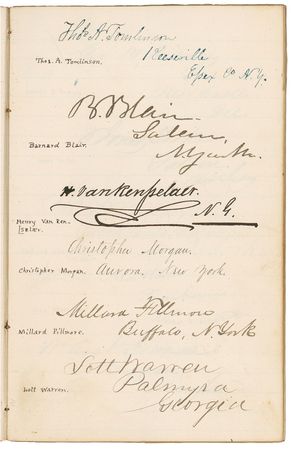 Thos. A. Tomlinson
Keeseville
Essex Co N.Y.
Thos. A. Tomlinson.
B. Blair
Salem,
N. York.
Barnard Blair.
H. van Rensselaer.
N.Y.
Henry Van Ren-
selær.
Christopher Morgan.
Christopher Morgan.
Aurora. New York
Millard Fillmore
Millard Fillmore.
Buffalo, N. York
Lott Warren
Palmyra
Lott Warren.
Georgia